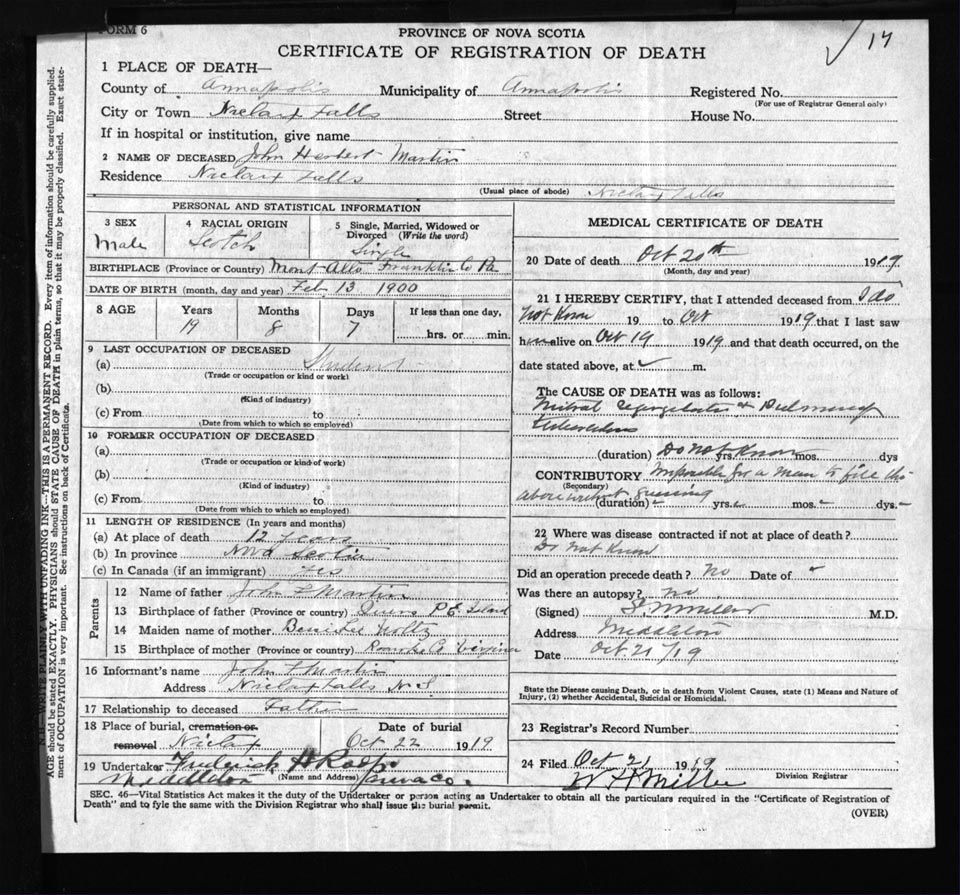 FORM 6
PROVINCE OF NOVA SCOTIA
17
CERTIFICATE OF REGISTRATION OF DEATH
1 PLACE OF DEATH—
County of Annapolis Municipality of Annapolis Registered No.
(For use of Registrar General only)
City or Town Nictaux Falls Street House No.
If in hospital or institution, give name
2 NAME OF DECEASED John Herbert Martin
Residence Nictaux Falls
(Usual place of abode) Nictaux Falls
PERSONAL AND STATISTICAL INFORMATION
3 SEX 4 RACIAL ORIGIN 5 Single, Married, Widowed or Divorced (Write the word)
Male Scotch Single
BIRTHPLACE (Province or Country) Mont Alto Franklin Co Pa
DATE OF BIRTH (month, day and year) Feb 13 1900
8 AGE Years Months Days If less than one day,
19 8 7 hrs. or min.
9 LAST OCCUPATION OF DECEASED
(a) Student
(Trade or occupation or kind or work)
(b)
(Kind of industry)
(c) From to
(Date from which to which so employed)
10 FORMER OCCUPATION OF DECEASED
(a)
(Trade or occupation or kind of work)
(b)
(Kind of industry)
(c) From to
(Date from which to which so employed)
11 LENGTH OF RESIDENCE (In years and months)
(a) At place of death 12 years
(b) In province Nova Scotia
(c) In Canada (if an immigrant) yes
Parents
12 Name of father John F Martin
13 Birthplace of father (Province or country) Queens P E Island
14 Maiden name of mother
15 Birthplace of mother (Province or country) Roanoke Virginia
16 Informant's name John F Martin
Address Nictaux Falls N S
17 Relationship to deceased Father
18 Place of burial, cremation or Date of burial
removal Nictaux Oct 22 1919
19 Undertaker Frederick H
Middleton (Name and Address)
MEDICAL CERTIFICATE OF DEATH
20 Date of death Oct 20th 1919
(Month, day and year)
21 I HEREBY CERTIFY, that I attended deceased from I do
not Know 19 to Oct 1919 that I last saw
him alive on Oct 19 1919 and that death occurred, on the
date stated above, at m.
The CAUSE OF DEATH was as follows:
Mitral regurgitation Pulmonary
Tuberculosis
(duration) Do not Know yrs. mos. dys
CONTRIBUTORY Impossible for a man to fill the
(Secondary)
above without guessing
(duration) yrs. mos. dys.
22 Where was disease contracted if not at place of death?
Do not Know
Did an operation precede death? No Date of
Was there an autopsy? No
(Signed) M.D.
Address Middleton
Date Oct 21/19
State the Disease causing Death, or in death from Violent Causes, state (1) Means and Nature of
Injury, (2) whether Accidental, Suicidal or Homicidal.
23 Registrar's Record Number
24 Filed Oct 21 1919
W H Miller Division Registrar
SEC. 46—Vital Statistics Act makes it the duty of the Undertaker or person acting as Undertaker to obtain all the particulars required in the "Certificate of Registration of
Death" and to fyle the same with the Division Registrar who shall issue the burial permit.
(OVER)
WRITE PLAINLY WITH UNFADING INK—THIS IS A PERMANENT RECORD. Every item of information should be carefully supplied.
AGE should be stated EXACTLY. PHYSICIANS should STATE CAUSE OF DEATH in plain terms, so that it may be properly classified. Exact state-
ment of OCCUPATION is very important. See instructions on back of Certificate.